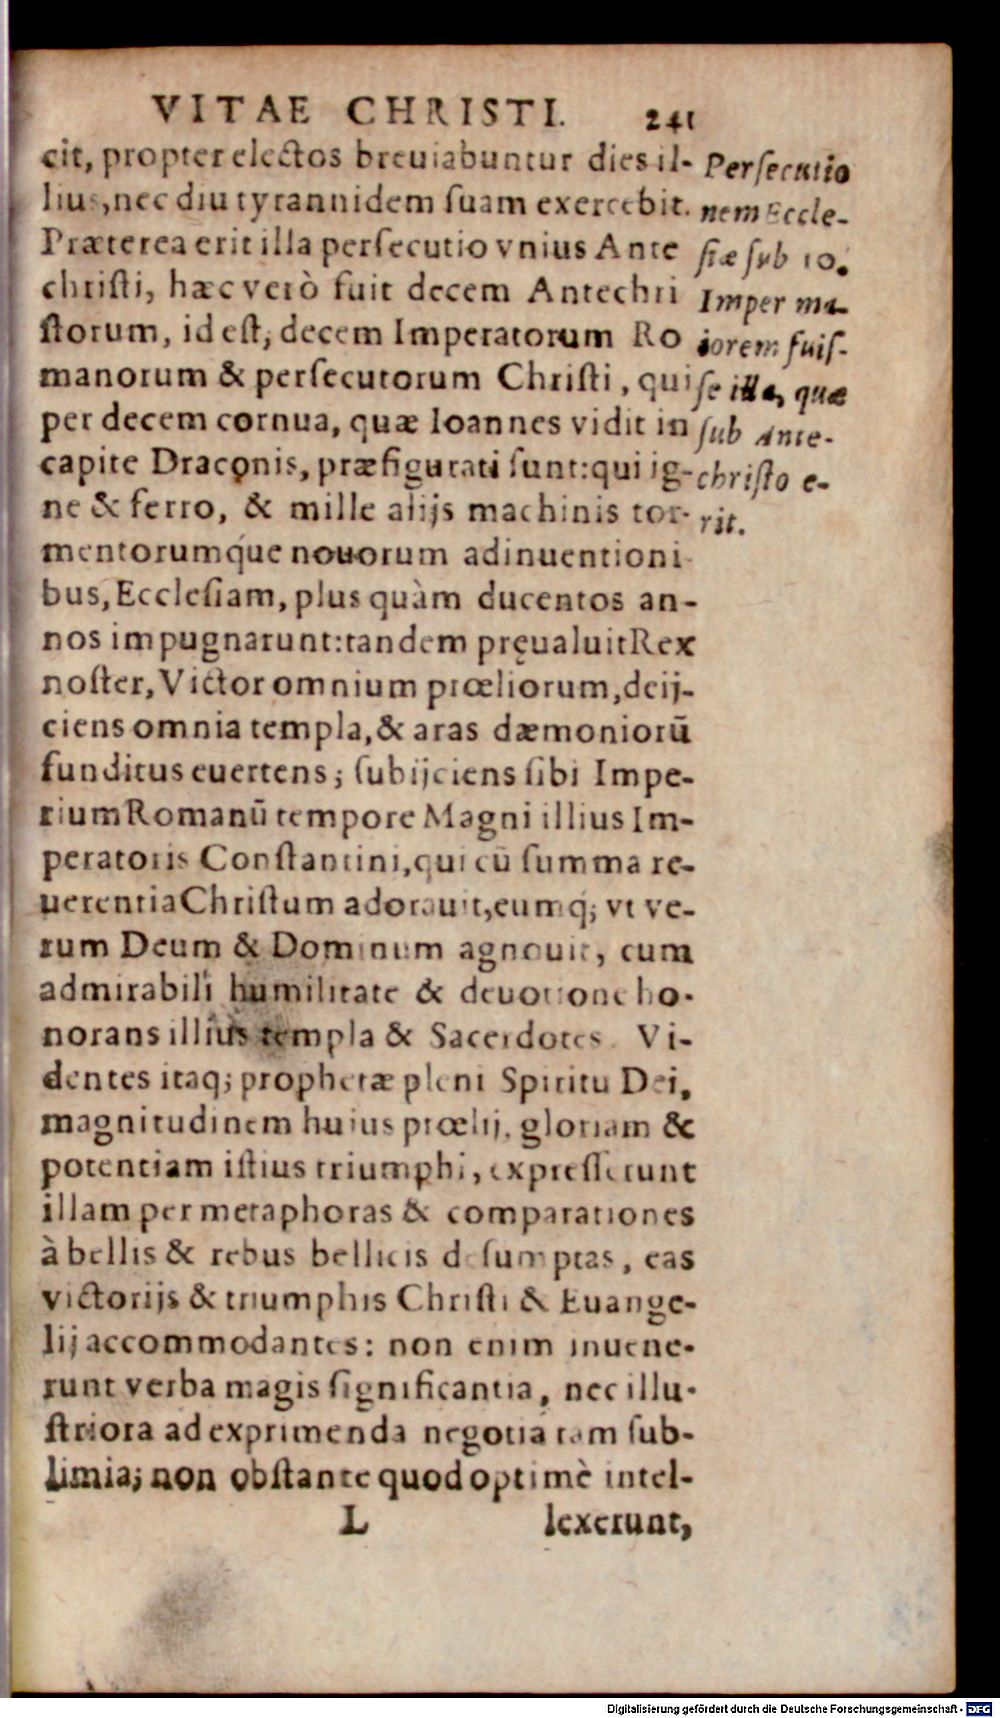 VITAE CHRISTI. 241
cit, propter electos breuiabuntur dies il-
lius, nec diu tyrannidem ſuam exercebit.
Præterea erit illa perſecutio vnius Ante
chriſti, hæc verò fuit decem Antechri
ſtorum, id eſt, decem Imperatorum Ro
manorum & perſecutorum Chriſti, qui
per decem cornua, quæ Ioannes vidit in
capite Draconis, præfigurati ſunt: qui ig-
ne & ferro, & mille alijs machinis tor-
mentorumq́ue nouorum adinuentioni
bus, Eccleſiam, plus quàm ducentos an-
nos impugnarunt: tandem pręualuit Rex
noſter, Victor omnium prœliorum, deij-
ciens omnia templa, & aras dæmoniorū
funditus euertens; ſubijciens ſibi Impe-
rium Romanū tempore Magni illius Im-
peratoris Conſtantini, qui cū ſumma re-
uerentia Chriſtum adorauit, eumq́; vt ve-
rum Deum & Dominum agnouit, cum
admirabili humilitate & deuotione ho-
norans illius templa & Sacerdotes. Vi-
dentes itaq; prophetæ pleni Spiritu Dei,
magnitudinem huius prœlij, gloriam &
potentiam iſtius triumphi, expreſſerunt
illam per metaphoras & comparationes
à bellis & rebus bellicis deſumptas, eas
victorijs & triumphis Chriſti & Euange-
lij accommodantes: non enim inuene-
runt verba magis ſignificantia, nec illu-
ſtriora ad exprimenda negotia tam ſub-
limia; non obſtante quod optimè intel-
L lexerunt,
Perſecutio
nem Eccle-
ſiæ ſub 10.
Imper ma-
iorem fuiſ-
ſe illa, quæ
ſub Ante-
chriſto e-
rit.
Digitalisierung gefördert durch die Deutsche Forschungsgemeinschaft - DFG